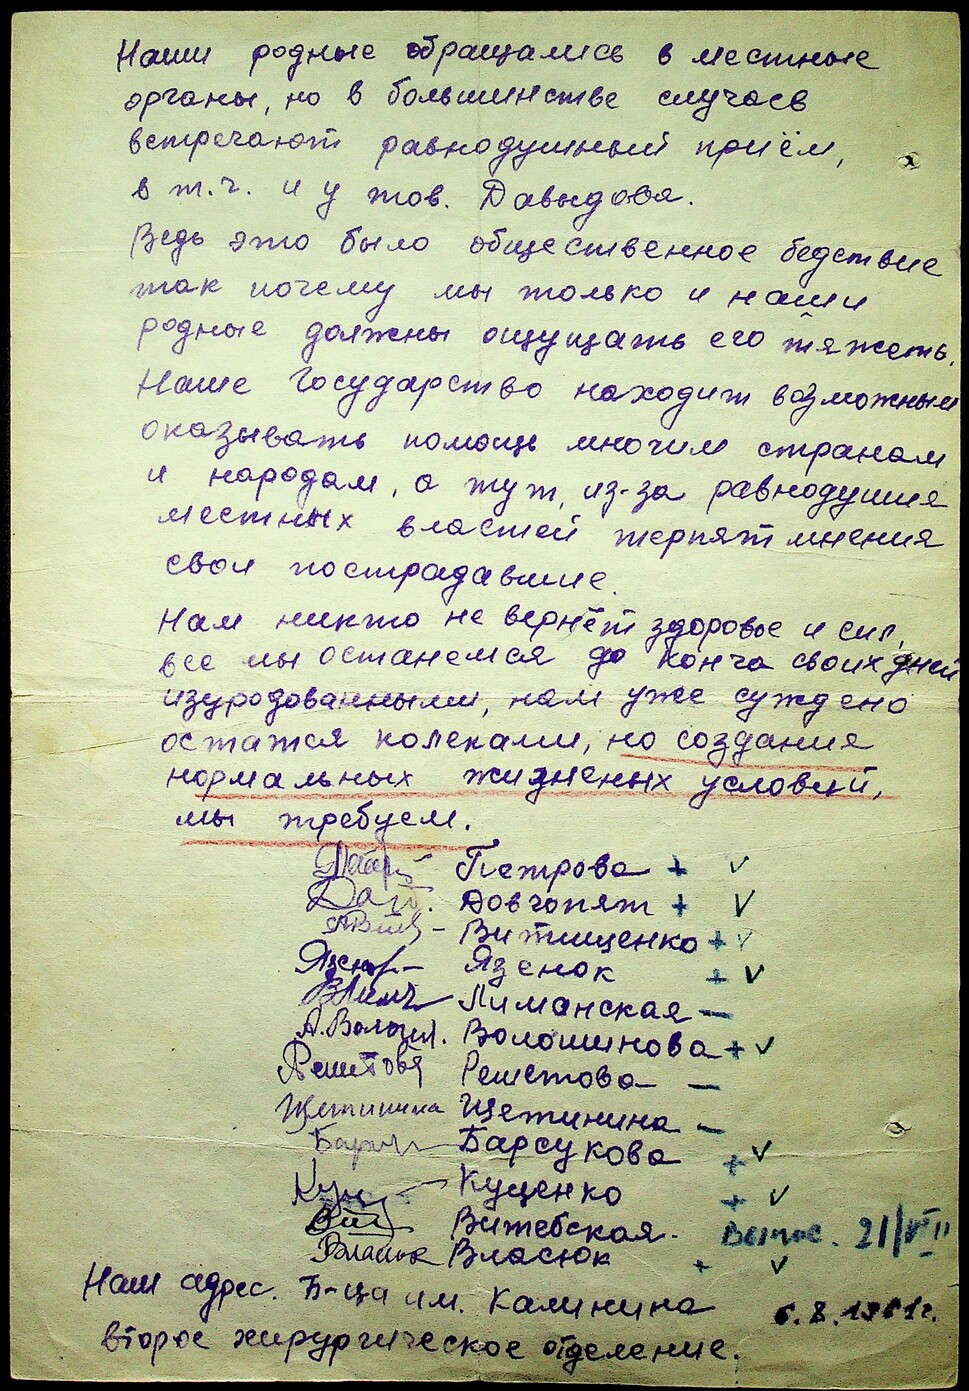 Наши родные обращались в местные
органы, но в большинстве случаев
встречают равнодушный приём,
в т.ч. и у тов. Давыдова.
Ведь это было общественное бедствие
так почему мы только и наши
родные должны ощущать его тяжесть.
Наше Государство находит возможным
оказывать помощь многим странам
и народам, а тут, из-за равнодушия
местных властей терпят мнения
свои пострадавшие.
Нам никто не вернёт здоровье и сил,
все мы останемся до конча своих дней
изуродованными, нам уже суждено
остатся колеками, но создания
нормальных жизненых условий,
мы требуем.
Петрова + ✓
Довгопят + ✓
Витищенко + ✓
Язенок – Язенок + ✓
Лиманская –
А. Волошин. Волошинова + ✓
Решетова Решетова –
Щетинина Щетинина –
Барсукова + ✓
Куц – Куценко + ✓
Вит Витебская. Выпис. 21/VIII
Власюк Власюк + ✓
Наш адрес. Б-ца им. Калинина
6.8.1961г.
второе хирургическое отделение.